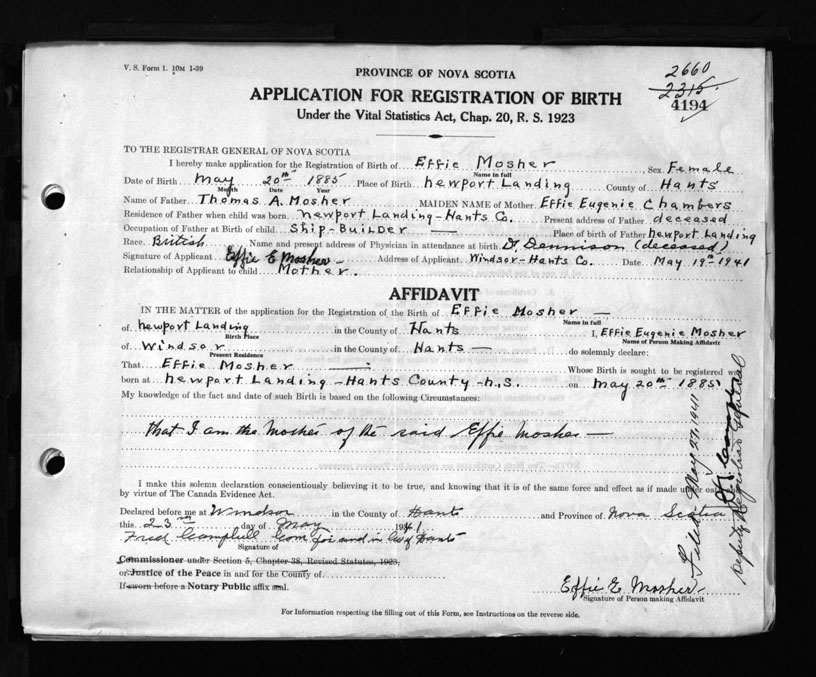 V. S. Form 1. 10M 1-39
2660
PROVINCE OF NOVA SCOTIA
2315
APPLICATION FOR REGISTRATION OF BIRTH
4194
Under the Vital Statistics Act, Chap. 20, R. S. 1923
TO THE REGISTRAR GENERAL OF NOVA SCOTIA
I hereby make application for the Registration of Birth of Effie Mosher Sex Female
Name in full
Date of Birth May 20th 1885 Place of Birth Newport Landing County of Hants
Month Date Year
Name of Father Thomas A. Mosher MAIDEN NAME of Mother Effie Eugenie Chambers
Residence of Father when child was born Newport Landing-Hants Co. Present address of Father deceased
Occupation of Father at Birth of child Ship-Builder — Place of birth of Father Newport Landing
Race British Name and present address of Physician in attendance at birth Dr. Dennison (deceased)
Signature of Applicant Effie E Mosher- Address of Applicant Windsor-Hants Co. Date May 19th 1941
Relationship of Applicant to child Mother.
AFFIDAVIT
IN THE MATTER of the application for the Registration of the Birth of Effie Mosher —
Name in full
of Newport Landing in the County of Hants I, Effie Eugenie Mosher
Birth Place Name of Person Making Affidavit
of Windsor in the County of Hants — do solemnly declare:
Present Residence
That Effie Mosher — Whose Birth is sought to be registered was
born at Newport Landing-Hants County-N.S. on May 20th 1885
My knowledge of the fact and date of such Birth is based on the following Circumstances:
that I am the Mother of the said Effie Mosher —
I make this solemn declaration conscientiously believing it to be true, and knowing that it is of the same force and effect as if made under oath
by virtue of The Canada Evidence Act.
Declared before me at Windsor in the County of Hants and Province of Nova Scotia
this 23rd day of May 1941
Fred Campbell Com for and in Co of Hants
Signature of
Commissioner under Section 5, Chapter 38, Revised Statutes, 1923,
or Justice of the Peace in and for the County of
If sworn before a Notary Public affix seal.
Effie E Mosher-
Signature of Person making Affidavit
For Information respecting the filling out of this Form, see Instructions on the reverse side.
Filed May 27, 1941
Deputy Registrar General